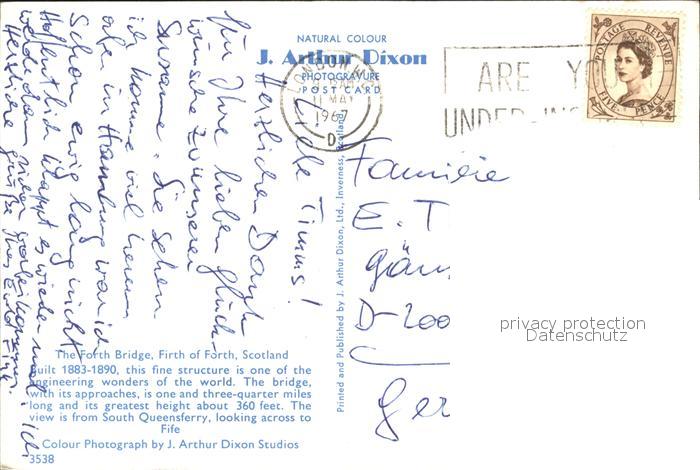 NATURAL COLOUR
J. Arthur Dixon
PHOTOGRAVURE
POST CARD
LONDON W
11 MAY
1967
D
ARE Y
UNDER-IN
POSTAGE REVENUE
FIVE PENCE
Liebe Timms!
Herzlichen Dank
für Ihre lieben Glück-
wünsche zu unserer
Susanne. Sie sehen
ich komme viel herum
aber in Hamburg war ich
schon ewig lang nicht
Hoffentlich klappt es wieder mal, ich
würde dann vorbeikommen.
Herzliche Grüße Ihre
Familie
E. T
Gän
D-200
Ger
Printed and Published by J. Arthur Dixon, Ltd., Inverness, Scotland
privacy protection
Datenschutz
The Forth Bridge, Firth of Forth, Scotland
Built 1883-1890, this fine structure is one of the
engineering wonders of the world. The bridge,
with its approaches, is one and three-quarter miles
long and its greatest height about 360 feet. The
view is from South Queensferry, looking across to
Fife
Colour Photograph by J. Arthur Dixon Studios
3538